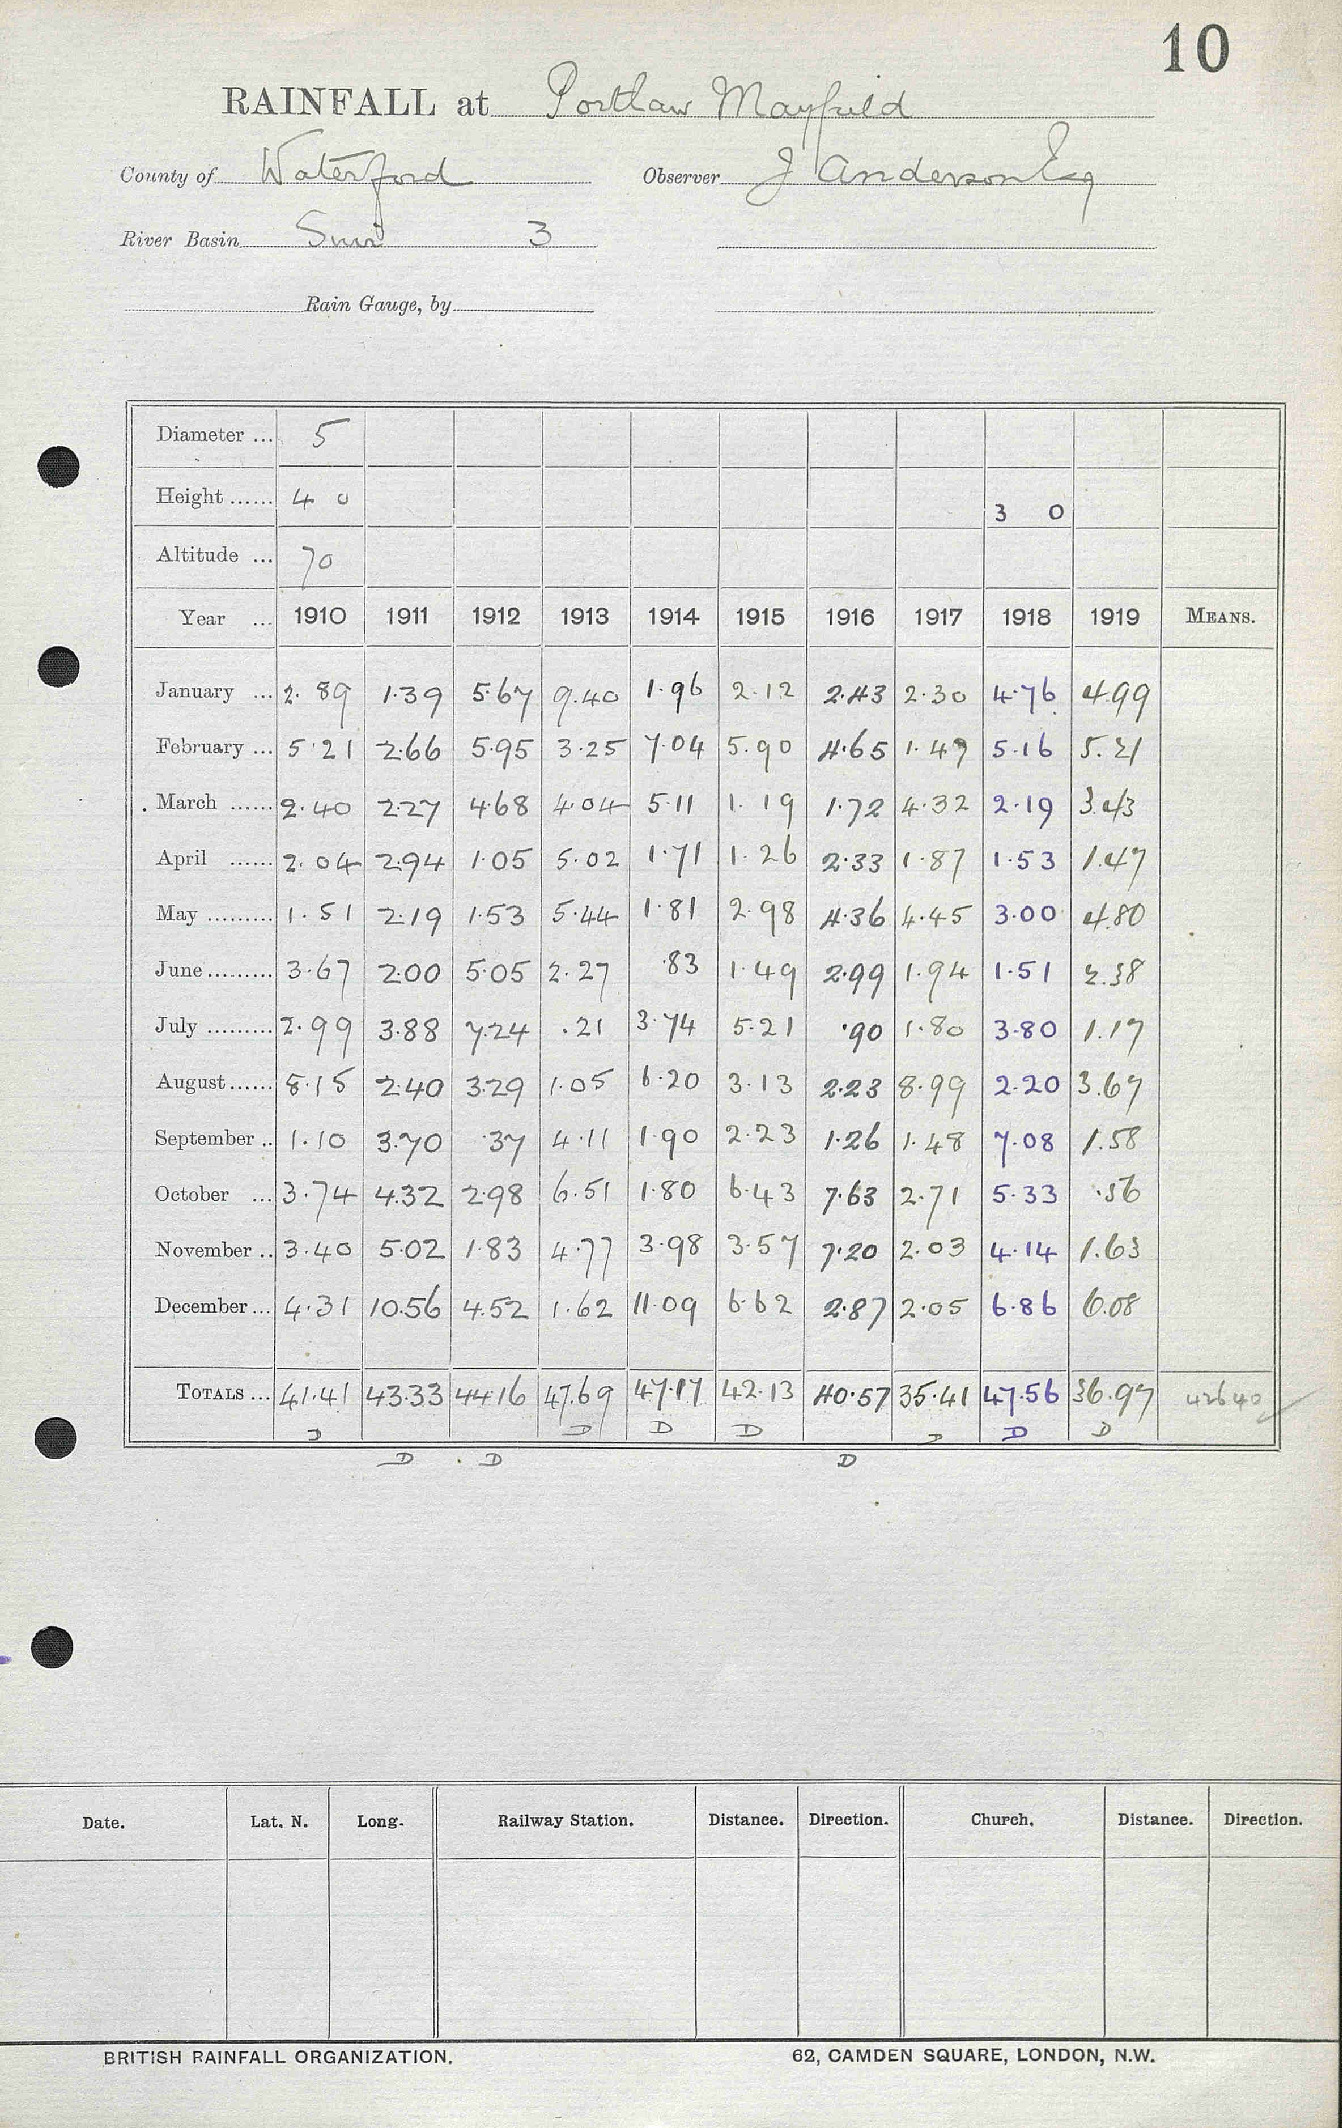 10
RAINFALL at Portlaw Mayfield
County of Waterford Observer J Anderson Esq
River Basin Suir 3
Rain Gauge, by
Diameter ... 5
Height ...... 4 0 3 0
Altitude ... 70
Year ... 1910 1911 1912 1913 1914 1915 1916 1917 1918 1919 MEANS.
January ... 2.89 1.39 5.67 9.40 1.96 2.12 2.43 2.30 4.76 4.99
February ... 5.21 2.66 5.95 3.25 7.04 5.90 4.65 1.47 5.16 5.21
March ...... 2.40 2.27 4.68 4.04 5.11 1.19 1.72 4.32 2.19 3.43
April ...... 2.04 2.94 1.05 5.02 1.71 1.26 2.33 1.87 1.53 1.47
May ......... 1.51 2.19 1.53 5.44 1.81 2.98 4.36 4.45 3.00 4.80
June ......... 3.67 2.00 5.05 2.27 .83 1.49 2.99 1.94 1.51 2.38
July ......... 2.99 3.88 7.24 .21 3.74 5.21 .90 1.80 3.80 1.17
August ...... 8.15 2.40 3.29 1.05 6.20 3.13 2.23 8.99 2.20 3.67
September .. 1.10 3.70 .37 4.11 1.90 2.23 1.26 1.48 7.08 1.58
October ... 3.74 4.32 2.98 6.51 1.80 6.43 7.63 2.71 5.33 .56
November .. 3.40 5.02 1.83 4.77 3.98 3.57 7.20 2.03 4.14 1.63
December ... 4.31 10.56 4.52 1.62 11.09 6.62 2.87 2.05 6.86 6.08
TOTALS ... 41.41 43.33 44.16 47.69 47.17 42.13 40.57 35.41 47.56 36.97 42640
D D D D D D D
D D D
Date. Lat. N. Long. Railway Station. Distance. Direction. Church. Distance. Direction.
BRITISH RAINFALL ORGANIZATION. 62, CAMDEN SQUARE, LONDON, N.W.